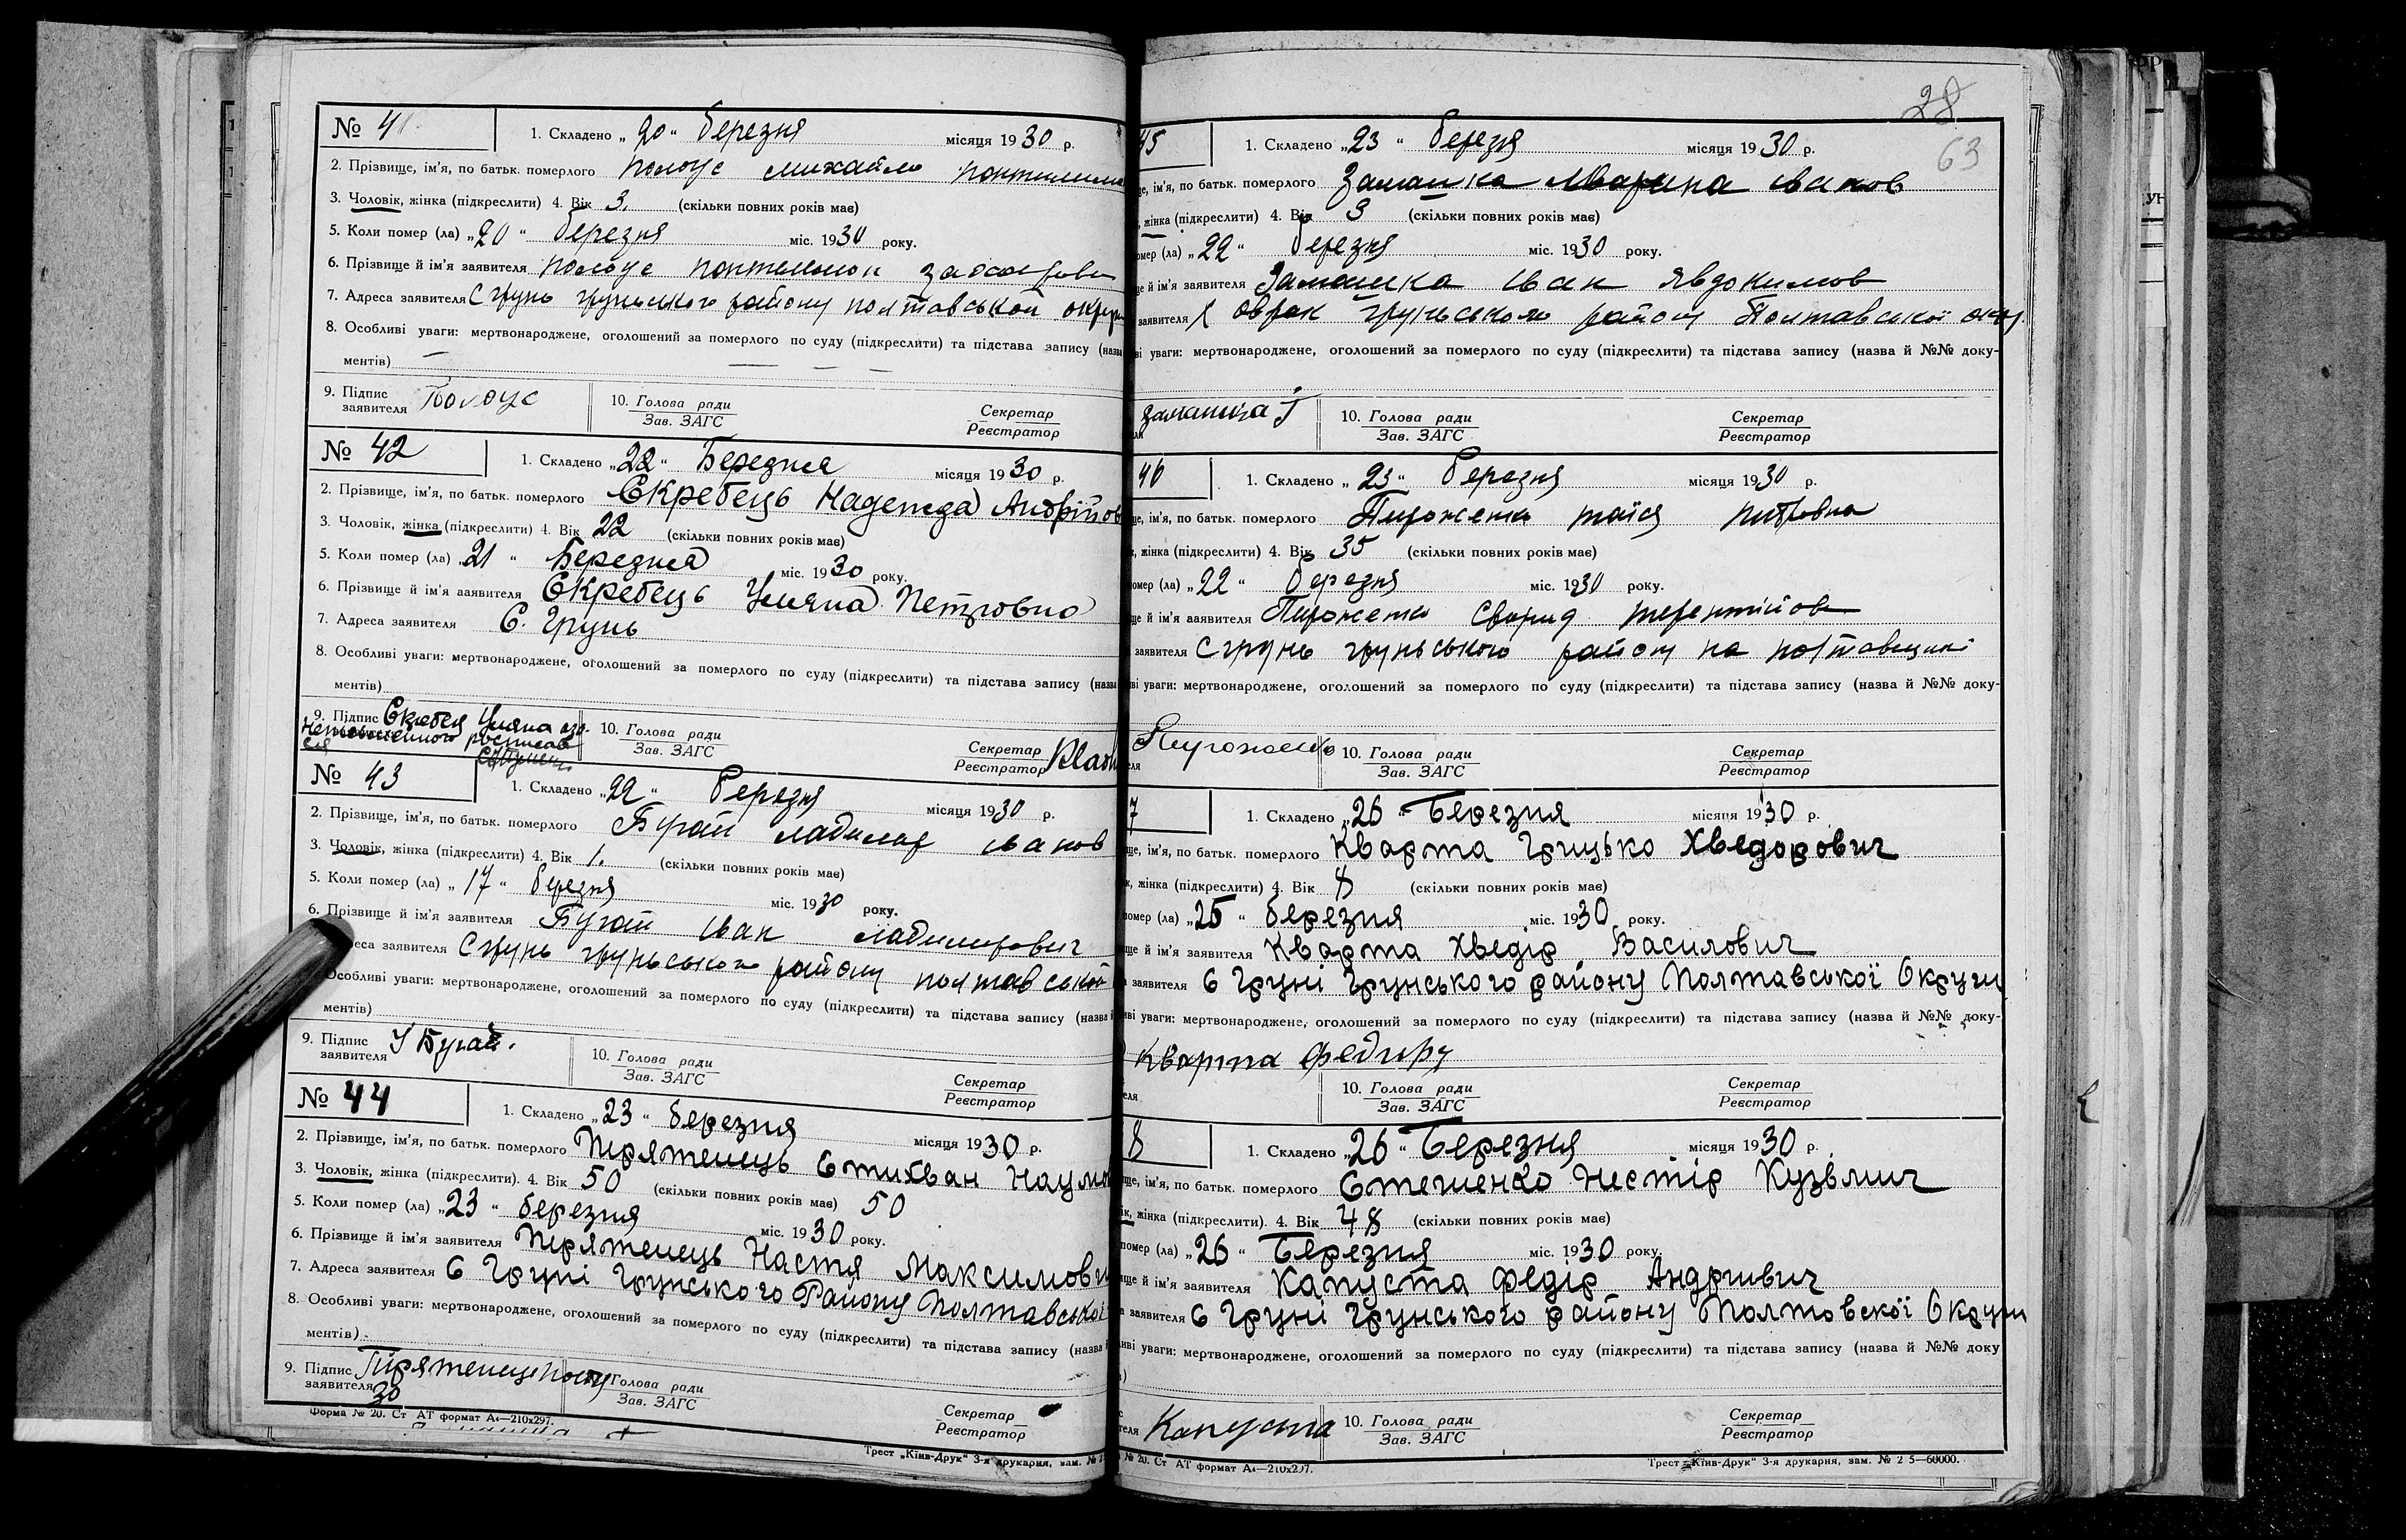 № 41 1. Складено „20“ березня місяця 1930 р.
2. Прізвище, ім'я, по батьк. померлого Полоус Михайло
3. Чоловік, жінка (підкреслити) 4. Вік 3. (скільки повних років має)
5. Коли помер (ла) „20“ березня міс. 1930 року.
6. Прізвище й ім'я заявителя Полоус
7. Адреса заявителя С Грунь груньського району полтавської округи
8. Особливі уваги: мертвонароджене, оголошений за померлого по суду (підкреслити) та підстава запису (назва
ментів)
9. Підпис Полоус 10. Голова ради Секретар
заявителя Зав. ЗАГС Реєстратор
№ 42 1. Складено „22“ Березня місяця 1930 р.
2. Прізвище, ім'я, по батьк. померлого Скребець Надежда Андрійов
3. Чоловік, жінка (підкреслити) 4. Вік 22 (скільки повних років має)
5. Коли помер (ла) „21“ Березня міс. 1930 року.
6. Прізвище й ім'я заявителя Скребець Уляна Петровно
7. Адреса заявителя С. Грунь
8. Особливі уваги: мертвонароджене, оголошений за померлого по суду (підкреслити) та підстава запису (назва
ментів)
9. Підпис Скребец Уляна 10. Голова ради Секретар
Зав. ЗАГС Реєстратор
№ 43 1. Складено „22“ березня місяця 1930 р.
2. Прізвище, ім'я, по батьк. померлого Бугай Иванов
3. Чоловік, жінка (підкреслити) 4. Вік 1. (скільки повних років має)
5. Коли помер (ла) „17“ березня міс. 1930 року.
6. Прізвище й ім'я заявителя Бугай Иван
еса заявителя С Грунь груньського району полтавської
Особливі уваги: мертвонароджене, оголошений за померлого по суду (підкреслити) та підстава запису (назва й
ментів)
9. Підпис У Бугай. 10. Голова ради Секретар
заявителя Зав. ЗАГС Реєстратор
№ 44 1. Складено „23“ березня місяця 1930 р.
2. Прізвище, ім'я, по батьк. померлого Пірятенець Стихван Наумо
3. Чоловік, жінка (підкреслити). 4. Вік 50 (скільки повних років має) 50
5. Коли помер (ла) „23“ березня міс. 1930 року.
6. Прізвище й ім'я заявителя Пірятенець Настя Максимовн
7. Адреса заявителя С Груні Грунського Району Полтавської
8. Особливі уваги: мертвонароджене, оголошений за померлого по суду (підкреслити) та підстава запису (назва й
ментів)
9. Підпис Пірятенець 10. Голова ради Секретар
заявителя 30 Зав. ЗАГС Реєстратор
Форма № 20. Ст АТ формат А4—210х297.
Трест „Київ-Друк“ 3-я друкарня, зам. №
28
63
45 1. Складено „23“ березня місяця 1930 р.
е, ім'я, по батьк. померлого Замашка Марина Иванов
жінка (підкреслити) 4. Вік 3 (скільки повних років має)
омер (ла) „22“ березня міс. 1930 року.
е й ім'я заявителя Замашка Иван Явдокимов
заявителя Х Оврак груньського району Полтавської окр
ві уваги: мертвонароджене, оголошений за померлого по суду (підкреслити) та підстава запису (назва й №№ доку-
Замашка І 10. Голова ради Секретар
Зав. ЗАГС Реєстратор
46 1. Складено „23“ березня місяця 1930 р.
е, ім'я, по батьк. померлого Пироженко таїся питровна
, жінка (підкреслити) 4. Вік 35 (скільки повних років має)
омер (ла) „22“ березня міс. 1930 року.
е й ім'я заявителя Пироженко Свирид терентійов
заявителя С грунь груньського району на полтавщині
ві уваги: мертвонароджене, оголошений за померлого по суду (підкреслити) та підстава запису (назва й №№ доку-
Пироженко 10. Голова ради Секретар
еля Зав. ЗАГС Реєстратор
7 1. Складено „26“ Березня місяця 1930 р.
ще, ім'я, по батьк. померлого Кварта Грицько Хведорович
к, жінка (підкреслити) 4. Вік 8 (скільки повних років має)
омер (ла) „25“ березня міс. 1930 року.
ще й ім'я заявителя Кварта Хведір Василович
заявителя С Груні Грунського району Полтавської Округи
ві уваги: мертвонароджене, оголошений за померлого по суду (підкреслити) та підстава запису (назва й №№ доку-
Кварта Федиру
10. Голова ради Секретар
еля Зав. ЗАГС Реєстратор
8 1. Складено „26“ Березня місяця 1930 р.
ще, ім'я, по батьк. померлого Стешенко Нестір Кузьмич
ік, жінка (підкреслити). 4. Вік 48 (скільки повних років має)
помер (ла) „26“ Березня міс. 1930 року.
ще й ім'я заявителя Капуста Федір Андриевич
а заявителя С Груні Грунського району Полтовскої Округи
иві уваги: мертвонароджене, оголошений за померлого по суду (підкреслити) та підстава запису (назва й №№ доку
Капуста 10. Голова ради Секретар
теля Зав. ЗАГС Реєстратор
№ 20. Ст АТ формат А4—210х297.
Трест „Київ-Друк“ 3-я друкарня, зам. № 2 5—60000.